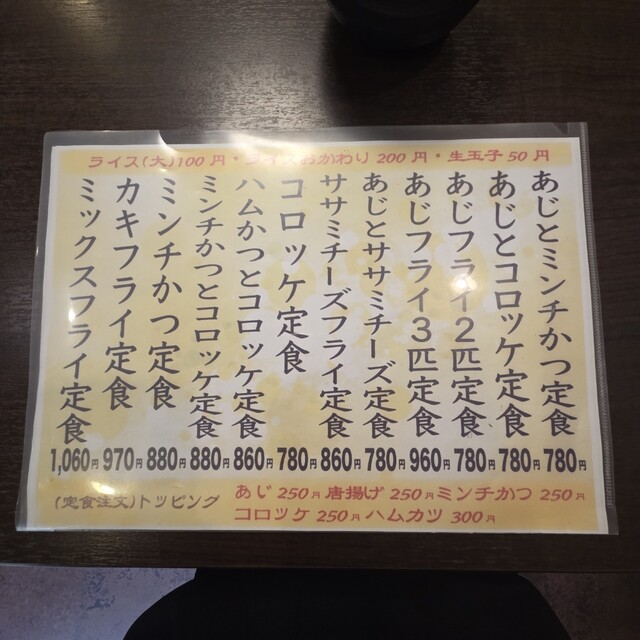 ライス(大)100円・ライスおかわり 200円・生玉子 50円
あじとミンチかつ定食 780円
あじとコロッケ定食 780円
あじフライ2匹定食 780円
あじフライ3匹定食 960円
あじとササミチーズ定食 780円
ササミチーズフライ定食 860円
コロッケ定食 780円
ハムかつとコロッケ定食 860円
ミンチかつとコロッケ定食 880円
ミンチかつ定食 880円
カキフライ定食 970円
ミックスフライ定食 1,060円
(定食注文)トッピング
あじ 250円 唐揚げ 250円 ミンチかつ 250円
コロッケ 250円 ハムカツ 300円